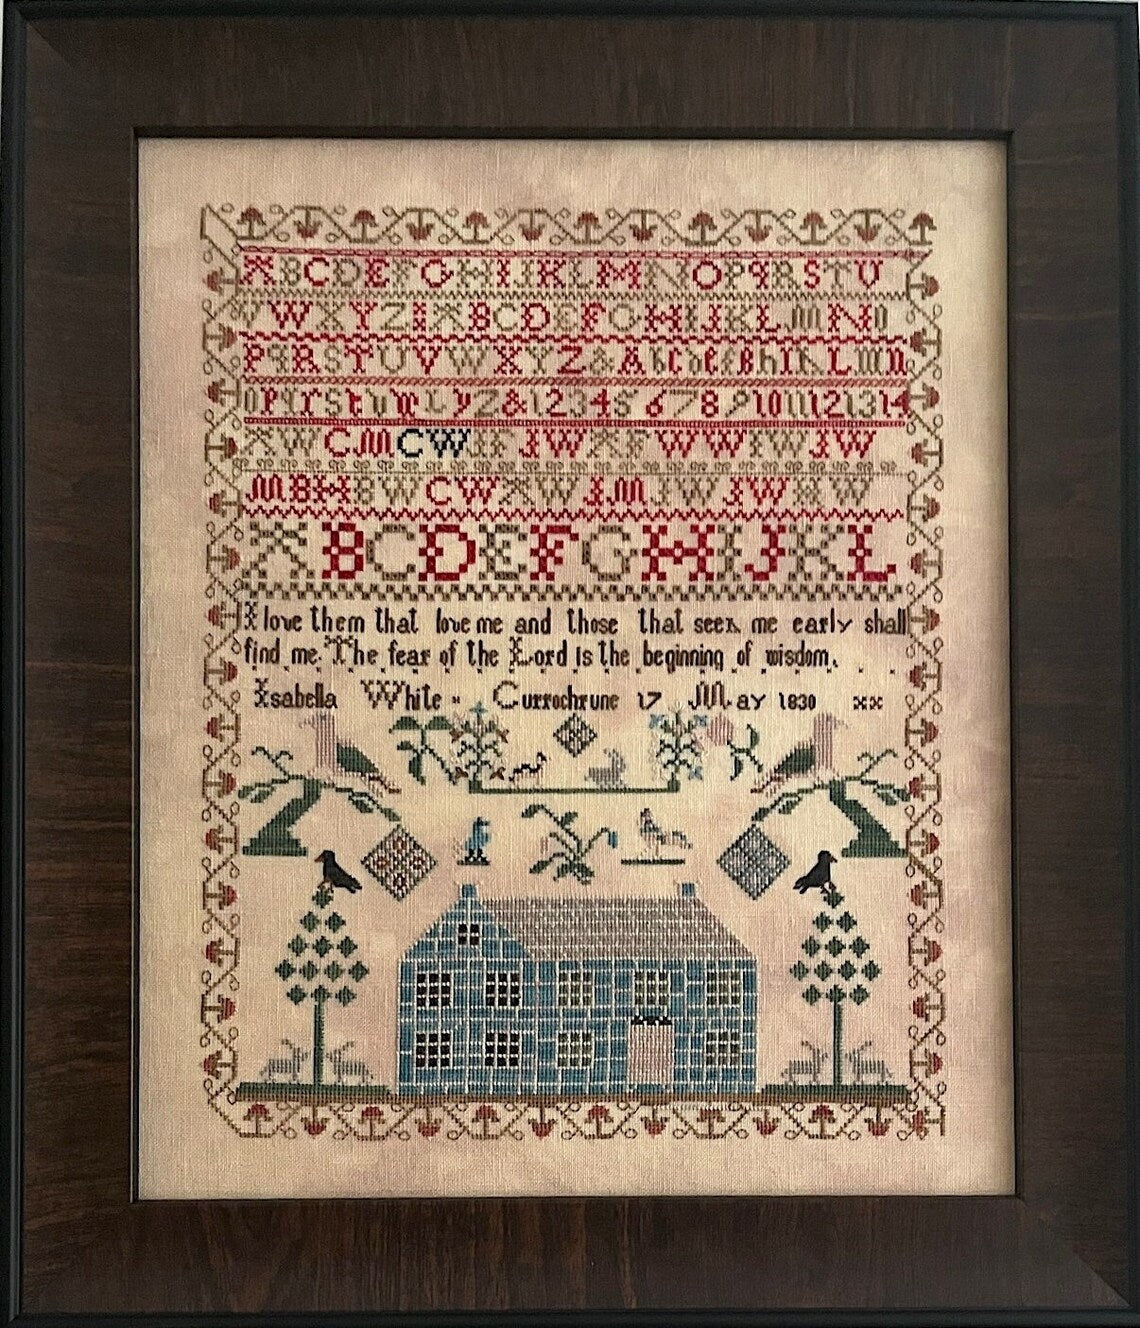 A B C D E F G H I J K L M N O P q R S T U
V W X Y Z I A B C D E F G H I J K L M N O
P q R S T U V W X Y Z & A b c d e f g h i k L m n
o p q r s t u w x y z & 1 2 3 4 5 6 7 8 9 10 11 12 13 14
A W C M C W I F J W A F W W I W J W
M B H B W C W A W J M J W J W A W
A B C D E F G H I J K L
I love them that love me and those that seek me early shall
find me. The fear of the Lord is the beginning of wisdom. . .
Isabella White Currochrune 17 May 1830 xx